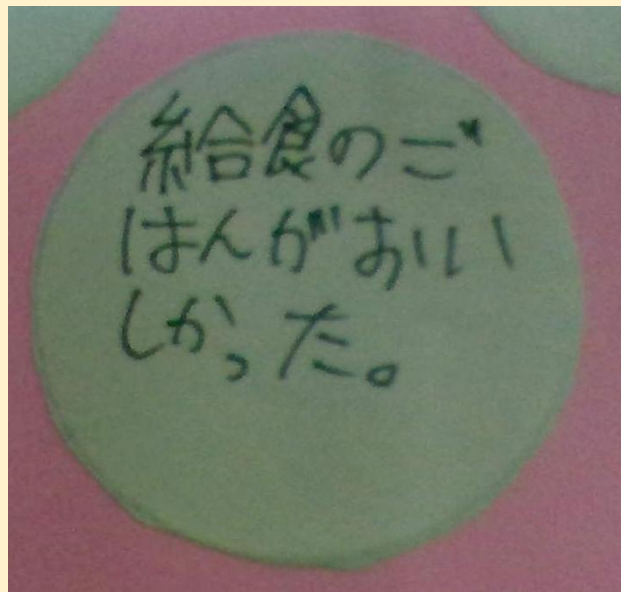 給食のご
はんがおいい
しかった。